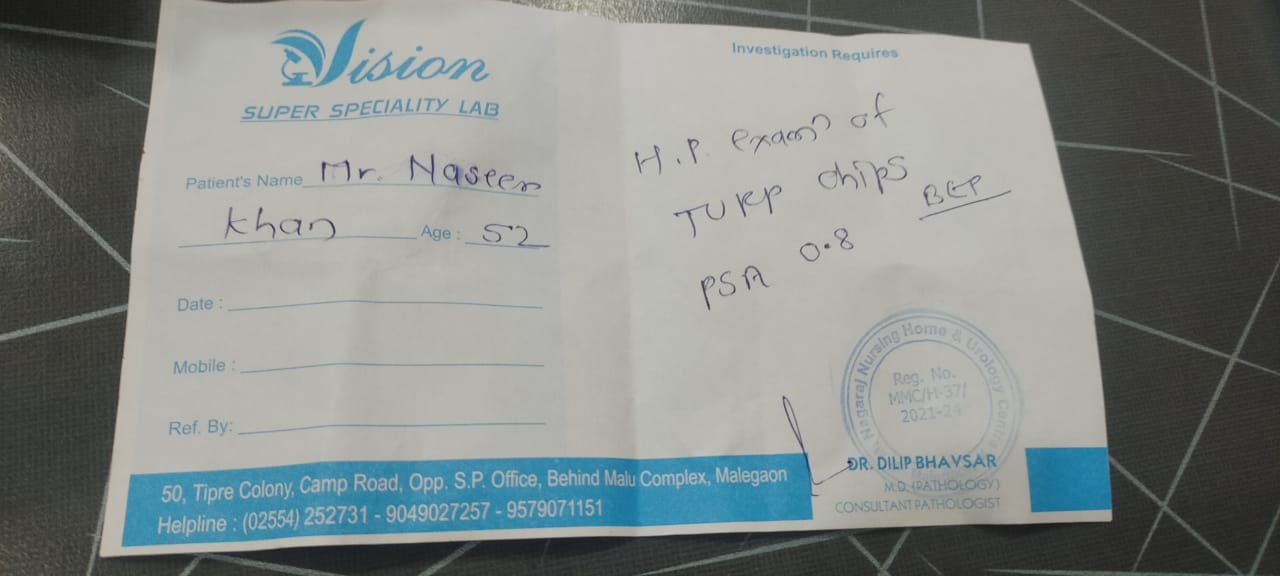 Vision
SUPER SPECIALITY LAB
Patient's Name Mr. Naseer
Khan Age : 52
Date :
Mobile :
Ref. By:
50, Tipre Colony, Camp Road, Opp. S.P. Office, Behind Malu Complex, Malegaon
Helpline : (02554) 252731 - 9049027257 - 9579071151
Investigation Requires
H.P. exam of
TURP chips
BEP
PSA 0.8
Nagaraj Nursing Home & Urology Centre
Reg. No.
MMC/H-37/
2021-24
DR. DILIP BHAVSAR
M.D. (PATHOLOGY)
CONSULTANT PATHOLOGIST